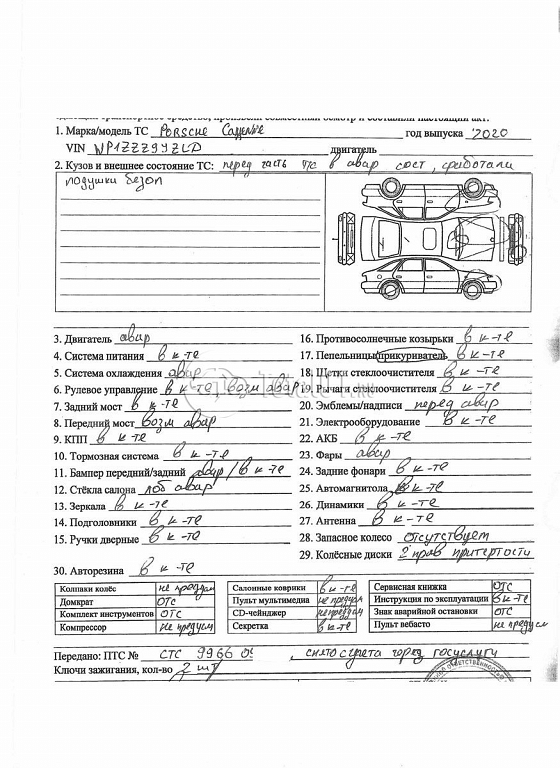 1. Марка/модель ТС PORSCHE Cayenne год выпуска 2020
VIN WP1ZZZ9YZLD двигатель
2. Кузов и внешнее состояние ТС: перед часть ТС в авар сост, сработали
подушки безоп
3. Двигатель авар
4. Система питания в к-те
5. Система охлаждения авар
6. Рулевое управление в к-те, возм авар
7. Задний мост в к-те
8. Передний мост возм авар
9. КПП в к-те
10. Тормозная система в к-те
11. Бампер передний/задний авар / в к-те
12. Стёкла салона лоб авар
13. Зеркала в к-те
14. Подголовники в к-те
15. Ручки дверные в к-те
16. Противосолнечные козырьки в к-те
17. Пепельницы/прикуриватель в к-те
18. Щетки стеклоочистителя в к-те
19. Рычаги стеклоочистителя в к-те
20. Эмблемы/надписи перед авар
21. Электрооборудование в к-те
22. АКБ в к-те
23. Фары авар
24. Задние фонари в к-те
25. Автомагнитола в к-те
26. Динамики в к-те
27. Антенна в к-те
28. Запасное колесо отсутствует
29. Колёсные диски 2 прав притертости
30. Авторезина в к-те
Колпаки колёс не предусм
Домкрат ОТС
Комплект инструментов ОТС
Компрессор не предусм
Салонные коврики в к-те
Пульт мультимедиа не предусм
CD-чейнджер не предусм
Секретка в к-те
Сервисная книжка ОТС
Инструкция по эксплуатации в к-те
Знак аварийной остановки ОТС
Пульт вебасто не предусм
Передано: ПТС № СТС 9966 , снято с учета через госуслуги
Ключи зажигания, кол-во 2 шт